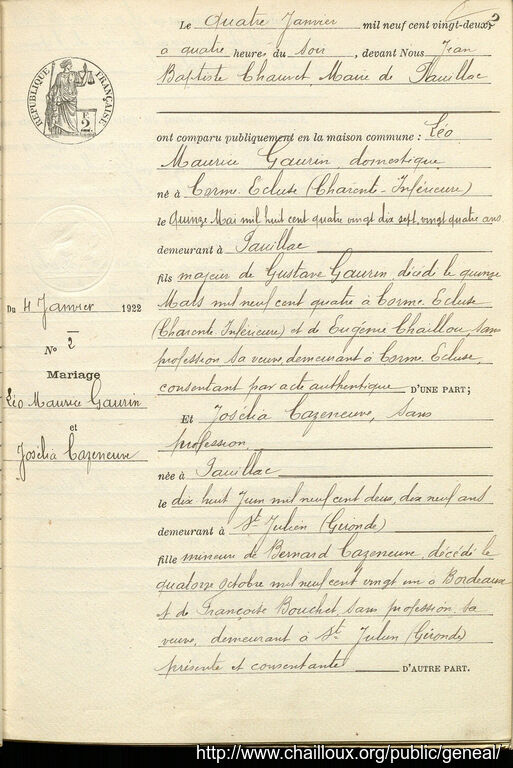 2
Le quatre Janvier mil neuf cent vingt-deux
à quatre heure du soir, devant Nous Jean
Baptiste Chauvet, Maire de Pauillac
RÉPUBLIQUE FRANÇAISE
2
ont comparu publiquement en la maison commune : Léo
Maurice Gaurin, domestique
né à Corme-Ecluse (Charente-Inférieure)
le quinze Mai mil huit cent quatre vingt dix sept, vingt quatre ans
demeurant à Pauillac
fils majeur de Gustave Gaurin, décédé le quinze
Mars mil neuf cent quatre à Corme-Ecluse
(Charente Inférieure) et de Eugénie Chaillou, sans
profession sa veuve, demeurant à Corme-Ecluse,
consentant par acte authentique D'UNE PART;
Du 4 Janvier 1922
No 2
Mariage
Léo Maurice Gaurin
et
Josélia Cazeneuve
Et Josélia Cazeneuve, sans
profession,
née à Pauillac
le dix huit Juin mil neuf cent deux, dix neuf ans
demeurant à St Julien (Gironde)
fille mineure de Bernard Cazeneuve, décédé le
quatorze octobre mil neuf cent vingt un à Bordeaux
et de Françoise Bouchet, sans profession, sa
veuve, demeurant à St Julien (Gironde)
présente et consentante D'AUTRE PART.
http://www.chailloux.org/public/geneal/